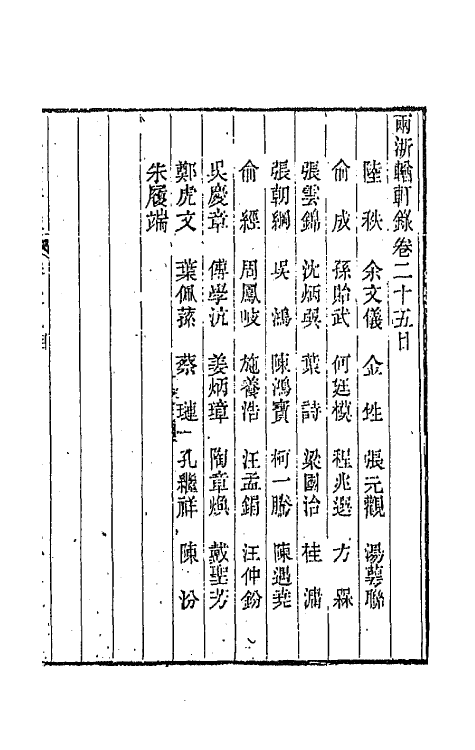 兩浙輶軒錄卷二十五目
陸秩 余文儀 金甡 張元觀 湯蕚聯
俞成 孫貽武 何廷模 程兆選 方霖
張雲錦 沈炳巽 葉詩 梁國治 桂灝
張朝綱 吳鴻 陳鴻寶 柯一騰 陳遇堯
俞經 周鳳岐 施養浩 汪孟鋗 汪仲鈖
吳慶章 傅學沆 姜炳璋 陶章煥 戴聖芳
鄭虎文 葉佩蓀 蔡璉 孔繼祥 陳份
朱履端